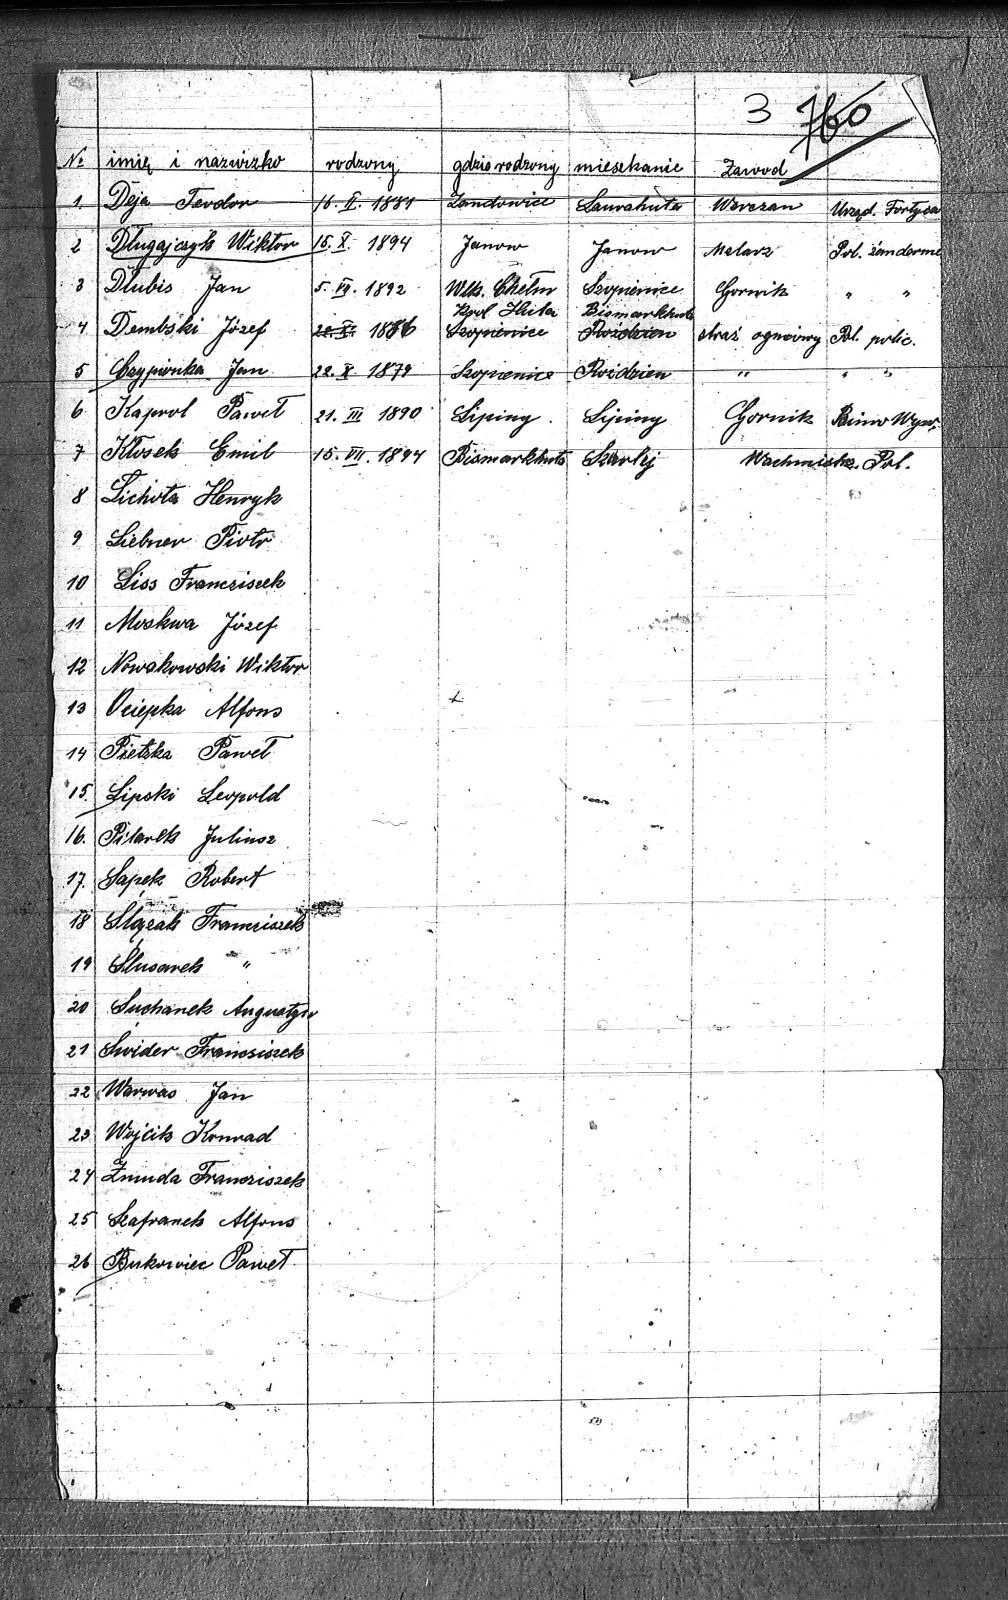 3 760
No imię i nazwizko rodzony gdzie rodzony mieszkanie Zawod
1. Deja Teodor 16. II. 1881 Zandowice Laurahuta Urząd.
2 Długajczyk Wiktor 15. X. 1894 Janow Janow Malarz Pol. żandarme
3 Dlubis Jan 5. VII. 1892 Wlk. Chełm Szopienice Gornik " "
Krol Huta Bismarkhuta
4 Dembski Józef 22. XI. 1886 Szopienice Roździen straż ogniowy Pol. polic.
5 Czypionka Jan 22. X. 1879 Szopienice Roździen " " "
6 Kaprol Paweł 21. III 1890 Lipiny Lipiny Gornik Biuro Wyw.
7 Kłosek Emil 15. VII. 1894 Bismarkhuta Szarlej Wachmistz. Pol.
8 Lichota Henryk
9 Liebner Piotr
10 Liss Franciszek
11 Moskwa Józef
12 Nowakowski Wiktor
13 Ociepka Alfons
14 Pietzka Paweł
15. Lipski Leopold
16. Pilarek Juliusz
17. Sapek Robert
18 Ślązak Franciszek
19 Slusarek "
20 Suchanek Augustyn
21 Swider Franciszek
22 Warwas Jan
23 Wojcik Konrad
24 Żmuda Franciszek
25 Szafranek Alfons
26 Bukowiec Paweł